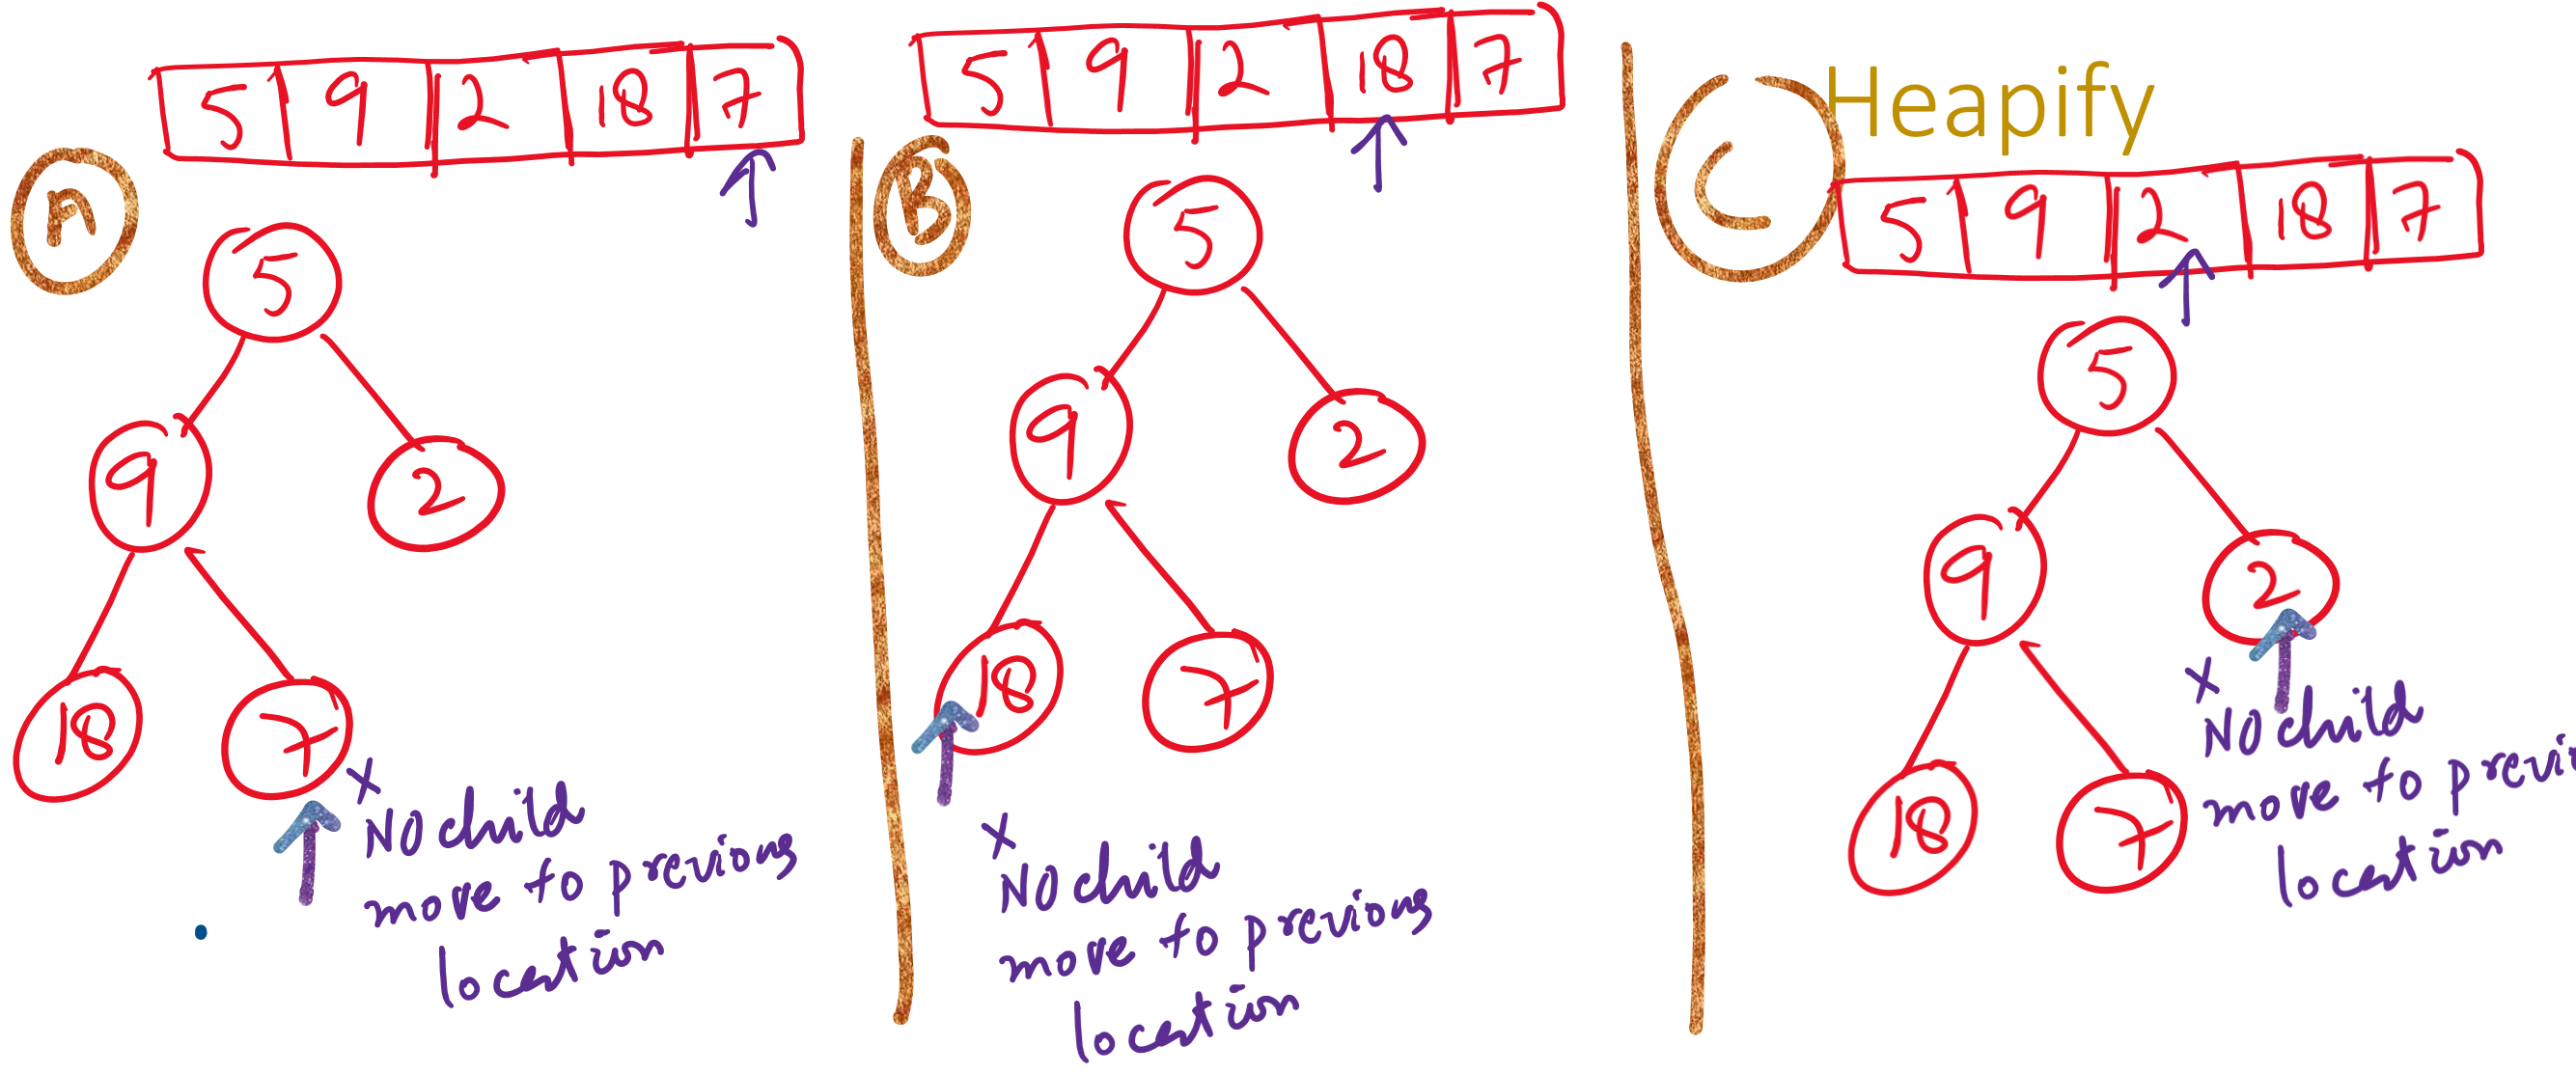 5 9 2 18 7
A
5
9 2
18 7
x
NO child
move to previous
location
5 9 2 18 7
B
5
9 2
18 7
x
NO child
move to previous
location
Heapify
C
5 9 2 18 7
5
9 2
18 7
x
NO child
move to previ
location